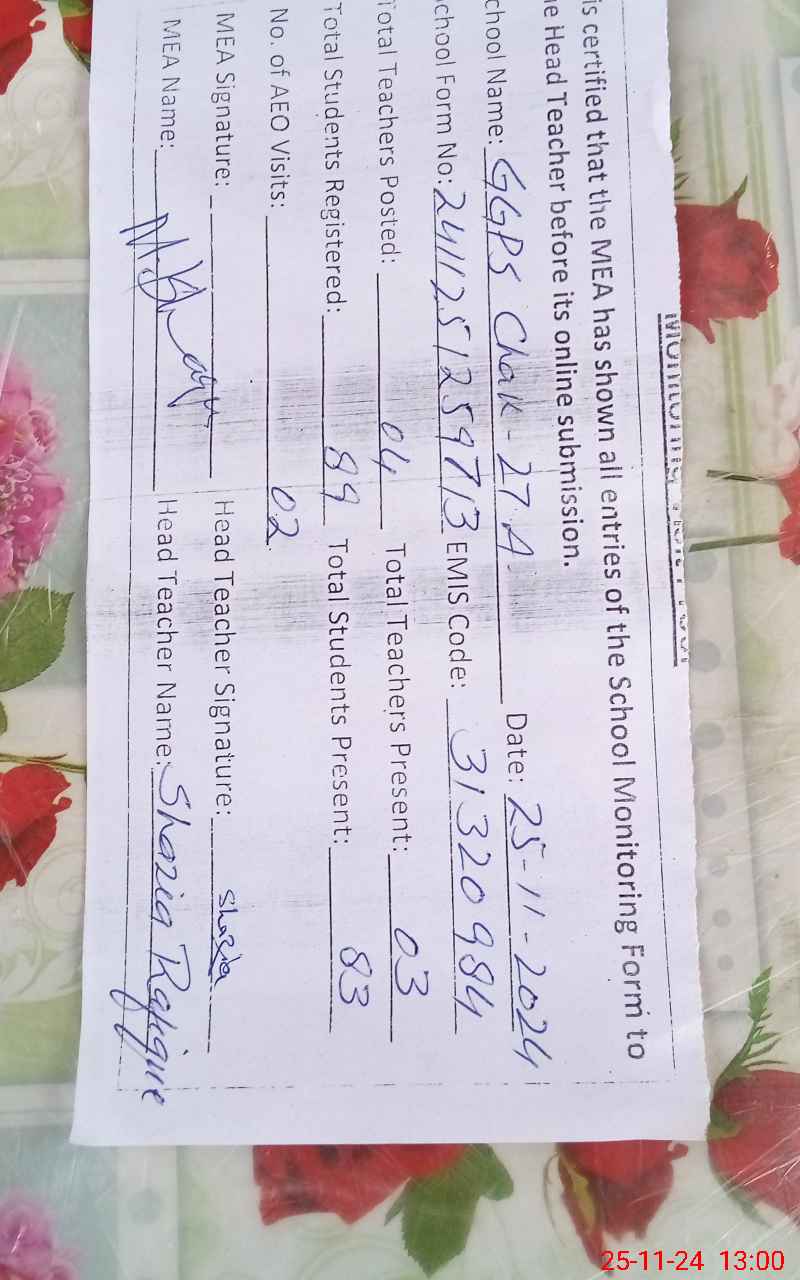 is certified that the MEA has shown all entries of the School Monitoring Form to
e Head Teacher before its online submission.
chool Name: GGPS Chak-27 A. Date: 25-11-2024
chool Form No: 2411251259713 EMIS Code: 31320984
Total Teachers Posted: 04 Total Teachers Present: 03
Total Students Registered: 89 Total Students Present: 83
No. of AEO Visits: 02
MEA Signature: Head Teacher Signature: Shazia
MEA Name: Head Teacher Name: Shazia Rafique
25-11-24 13:00